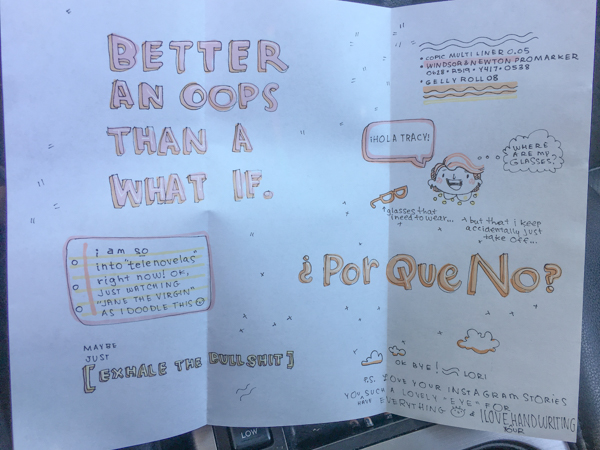 BETTER
AN OOPS
THAN A
WHAT IF.
i am so
into "telenovelas"
right now! OK,
JUST WATCHING
"JANE THE VIRGIN"
AS I DOODLE THIS
MAYBE
JUST
[EXHALE THE BULLSHIT]
• COPIC MULTI LINER 0.05
• WINDSOR&NEWTON PROMARKER
O628 • R519 • Y417 • O538
• GELLY ROLL 08
¡HOLA TRACY!
WHERE
ARE MY
GLASSES?
glasses that
I need to wear...
but that i keep
accidentally just
take off...
¿Por Que No?
OK BYE! LORI
P.S. LOVE YOUR INSTAGRAM STORIES
YOU HAVE SUCH A LOVELY "EYE" FOR
EVERYTHING & I LOVE HANDWRITING
YOUR
LOW